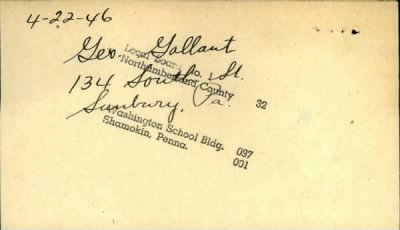 4-22-46
Geo. Gallaut
134 South St.
Sunbury, Pa.
Local Board No.
Northumberland County 32
Washington School Bldg. 097
Shamokin, Penna. 001